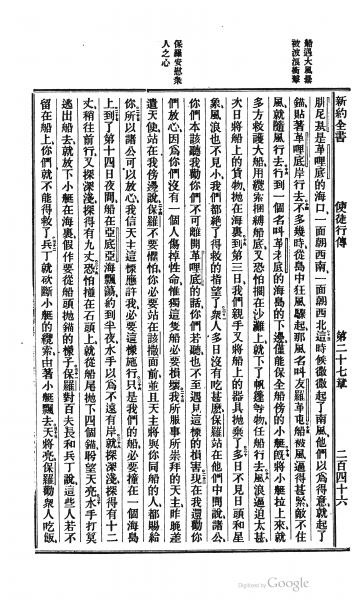 新約全書　使徒行傳　第二十七章　二百四十六
船遇大風暴
被波浪衝擊
保羅安慰衆
人之心
朋尼是革哩底的海口、一面朝西南、一面朝西北、這時候微微起了南風、他們以爲得意、就起了
錨、貼著革哩底岸行去、不多幾時、從島中狂風驟起、那風名叫友羅革屯、船被風逼得甚緊、敵不住
風、就隨風行去、行到一個名叫革老底的海島的下邊、僅能保全船傍的小艇、旣將小艇拉上來、就
多方救護大船、用纜索捆縛船底、又恐怕擱在沙灘上、就下了帆篷等物、任船行去、風浪逼迫太甚、
次日將船上的貨物、抛在海裏、到第三日、我們親手又將船上的器具抛棄了、多日不見日頭和星
象、風浪也不見小、我們都絕了得救的指望了、衆人多日沒有吃甚麼、保羅站在他們中間說、諸公、
你們本該聽我勸、你們不可離開革哩底的話、你們若聽、也不至遇見這樣的損害、現在我還勸你
們放心、因爲你們沒有一個人傷掉性命、惟獨這隻船必要損壞、我所服事所崇拜的天主、昨晚差
遣天使、站在我傍邊說、保羅不要懼怕、你必要站在該撒面前、並且天主將與你同船的人、都賜給
你、所以諸公可以放心、我信天主這樣應許我、必要這樣施行、只是我們的船、必要撞在一個海島
上、到了第十四日夜間、船在亞底亞海飄蕩、約到半夜、水手以爲不遠有岸、就探深淺、探得有十二
丈、稍往前行、又探深淺、探得有九丈、恐怕撞在石頭上、就從船尾抛下四個錨、盼望天亮、水手打算
逃出船去、就放下小艇在海裏、假作要從船頭抛錨的樣子、保羅對百夫長和兵丁說、這些人若不
留在船上、你們就不能得救了、兵丁就砍斷小艇的纜索、由著小艇飄去、天將亮、保羅勸衆人吃飯、
Digitized by Google